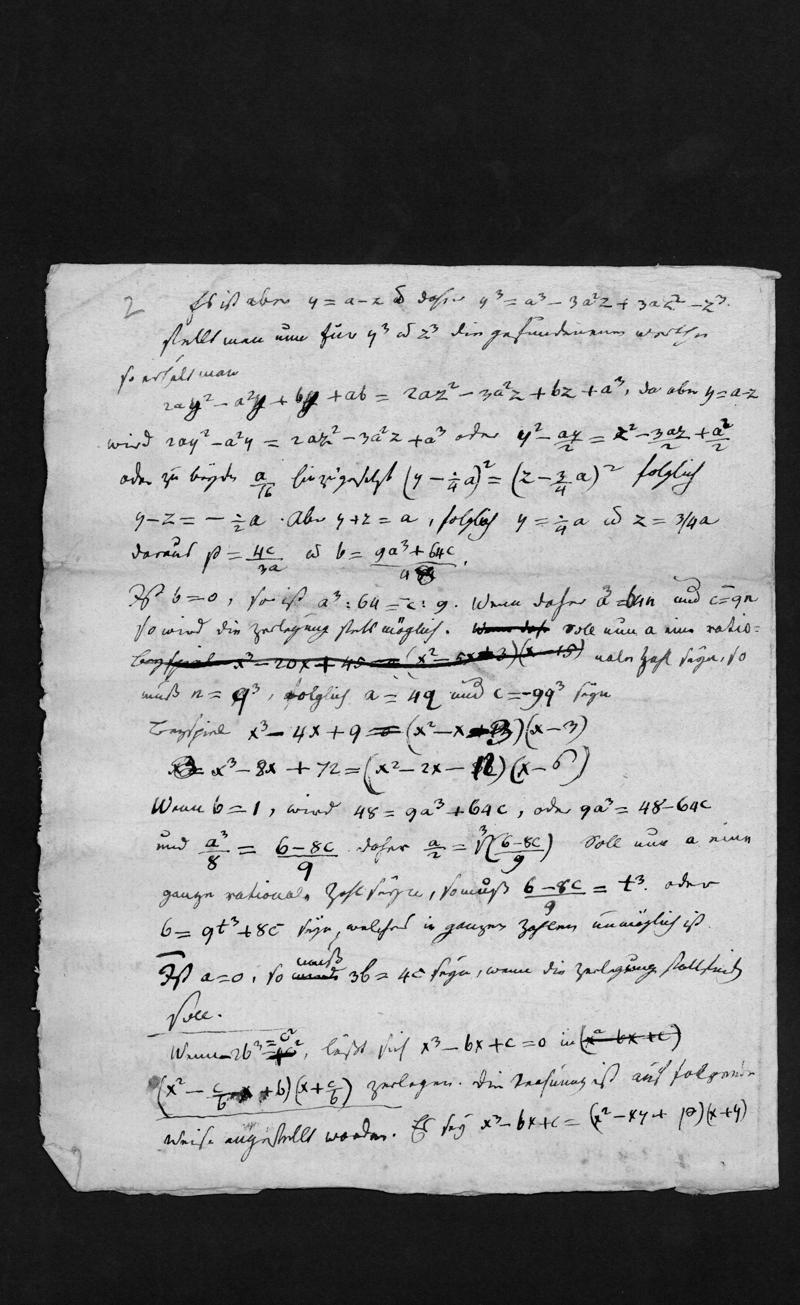 2 Es ist aber y = a - z u daher y³ = a³ - 3a²z + 3az² - z³.
stellt man nun für y³ u z³ die gefundenen werthe
so erhält man
2ay² - a²y + by + ab = 2az² - 3a²z + bz + a³, da aber y = a-z
wird 2ay² - a²y = 2az² - 3a²z + a³ oder y² - ay/2 = z² - 3az/2 + a²/2
oder zu beyde a/16 hinzugesetzt (y - ¼a)² = (z - ¾a)² folglich
y-z = - ½a. Aber y+z = a, folglich y = ¼a u z = 3/4a
daraus p = 4c/3a u b = 9a³+64c/48
Ist b=0, so ist a³ : 64 = c : 9. Wenn daher a³ = 64n und c = 9n
so wird die zerlegung statt möglich. Wenn dah. Soll nun a eine ratio=
Beyspiel x³ - 20x + 45 = (x² - 5x+3)(x-15) nale Zahl seyn, so
muß n = q³, folglich a = 4q und c = -9q³ seyn
Beyspiel x³ - 4x + 9 = (x² - x + 3)(x-3)
x³ - 8x + 72 = (x² - 2x - 12)(x-6)
Wenn b = 1, wird 48 = 9a³ + 64c, oder 9a³ = 48-64c
und a³/8 = 6-8c/9 daher a/2 = ³√(6-8c/9) Soll nun a eine
ganze rationale Zahl seyn, so muß 6-8c/9 = t³. oder
6 = 9t³+8c seyn, welches in ganzen Zahlen unmöglich ist.
Ist a=0, so muß 3b = 4c seyn, wenn die zerlegung statt finden
soll.
Wenn -2b³ = c², läßt sich x³ - bx + c = 0 in (x² - bx + c)
(x² - c/b x + b)(x + c/b) zerlegen. Die Rechnung ist auf folgende
Weise angestellt worden. Es sey x³ - bx + c = (x² - xy + p)(x+y)